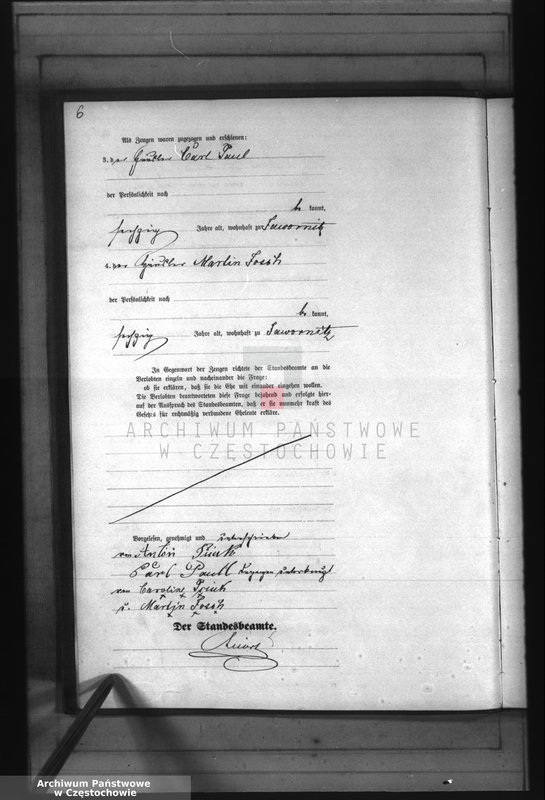 6
Als Zeugen waren zugezogen und erschienen:
3. der Häusler Carl Paul
der Persönlichkeit nach
be kannt,
sechzig Jahre alt, wohnhaft zu Jawornitz
4. der Häusler Martin Josch
der Persönlichkeit nach
be kannt,
sechzig Jahre alt, wohnhaft zu Jawornitz
In Gegenwart der Zeugen richtete der Standesbeamte an die
Verlobten einzeln und nacheinander die Frage:
ob sie erklären, daß sie die Ehe mit einander eingehen wollen.
Die Verlobten beantworteten diese Frage bejahend und erfolgte hier-
auf der Ausspruch des Standesbeamten, daß er sie nunmehr kraft des
Gesetzes für rechtmäßig verbundene Eheleute erkläre.
ARCHIWUM PAŃSTWOWE
W CZĘSTOCHOWIE
Vorgelesen, genehmigt und unterschrieben
von Anton
Carl Paul dagegen unterkreuzt
von Carolina
u. Martin Josch
Der Standesbeamte.
Archiwum Państwowe
w Częstochowie